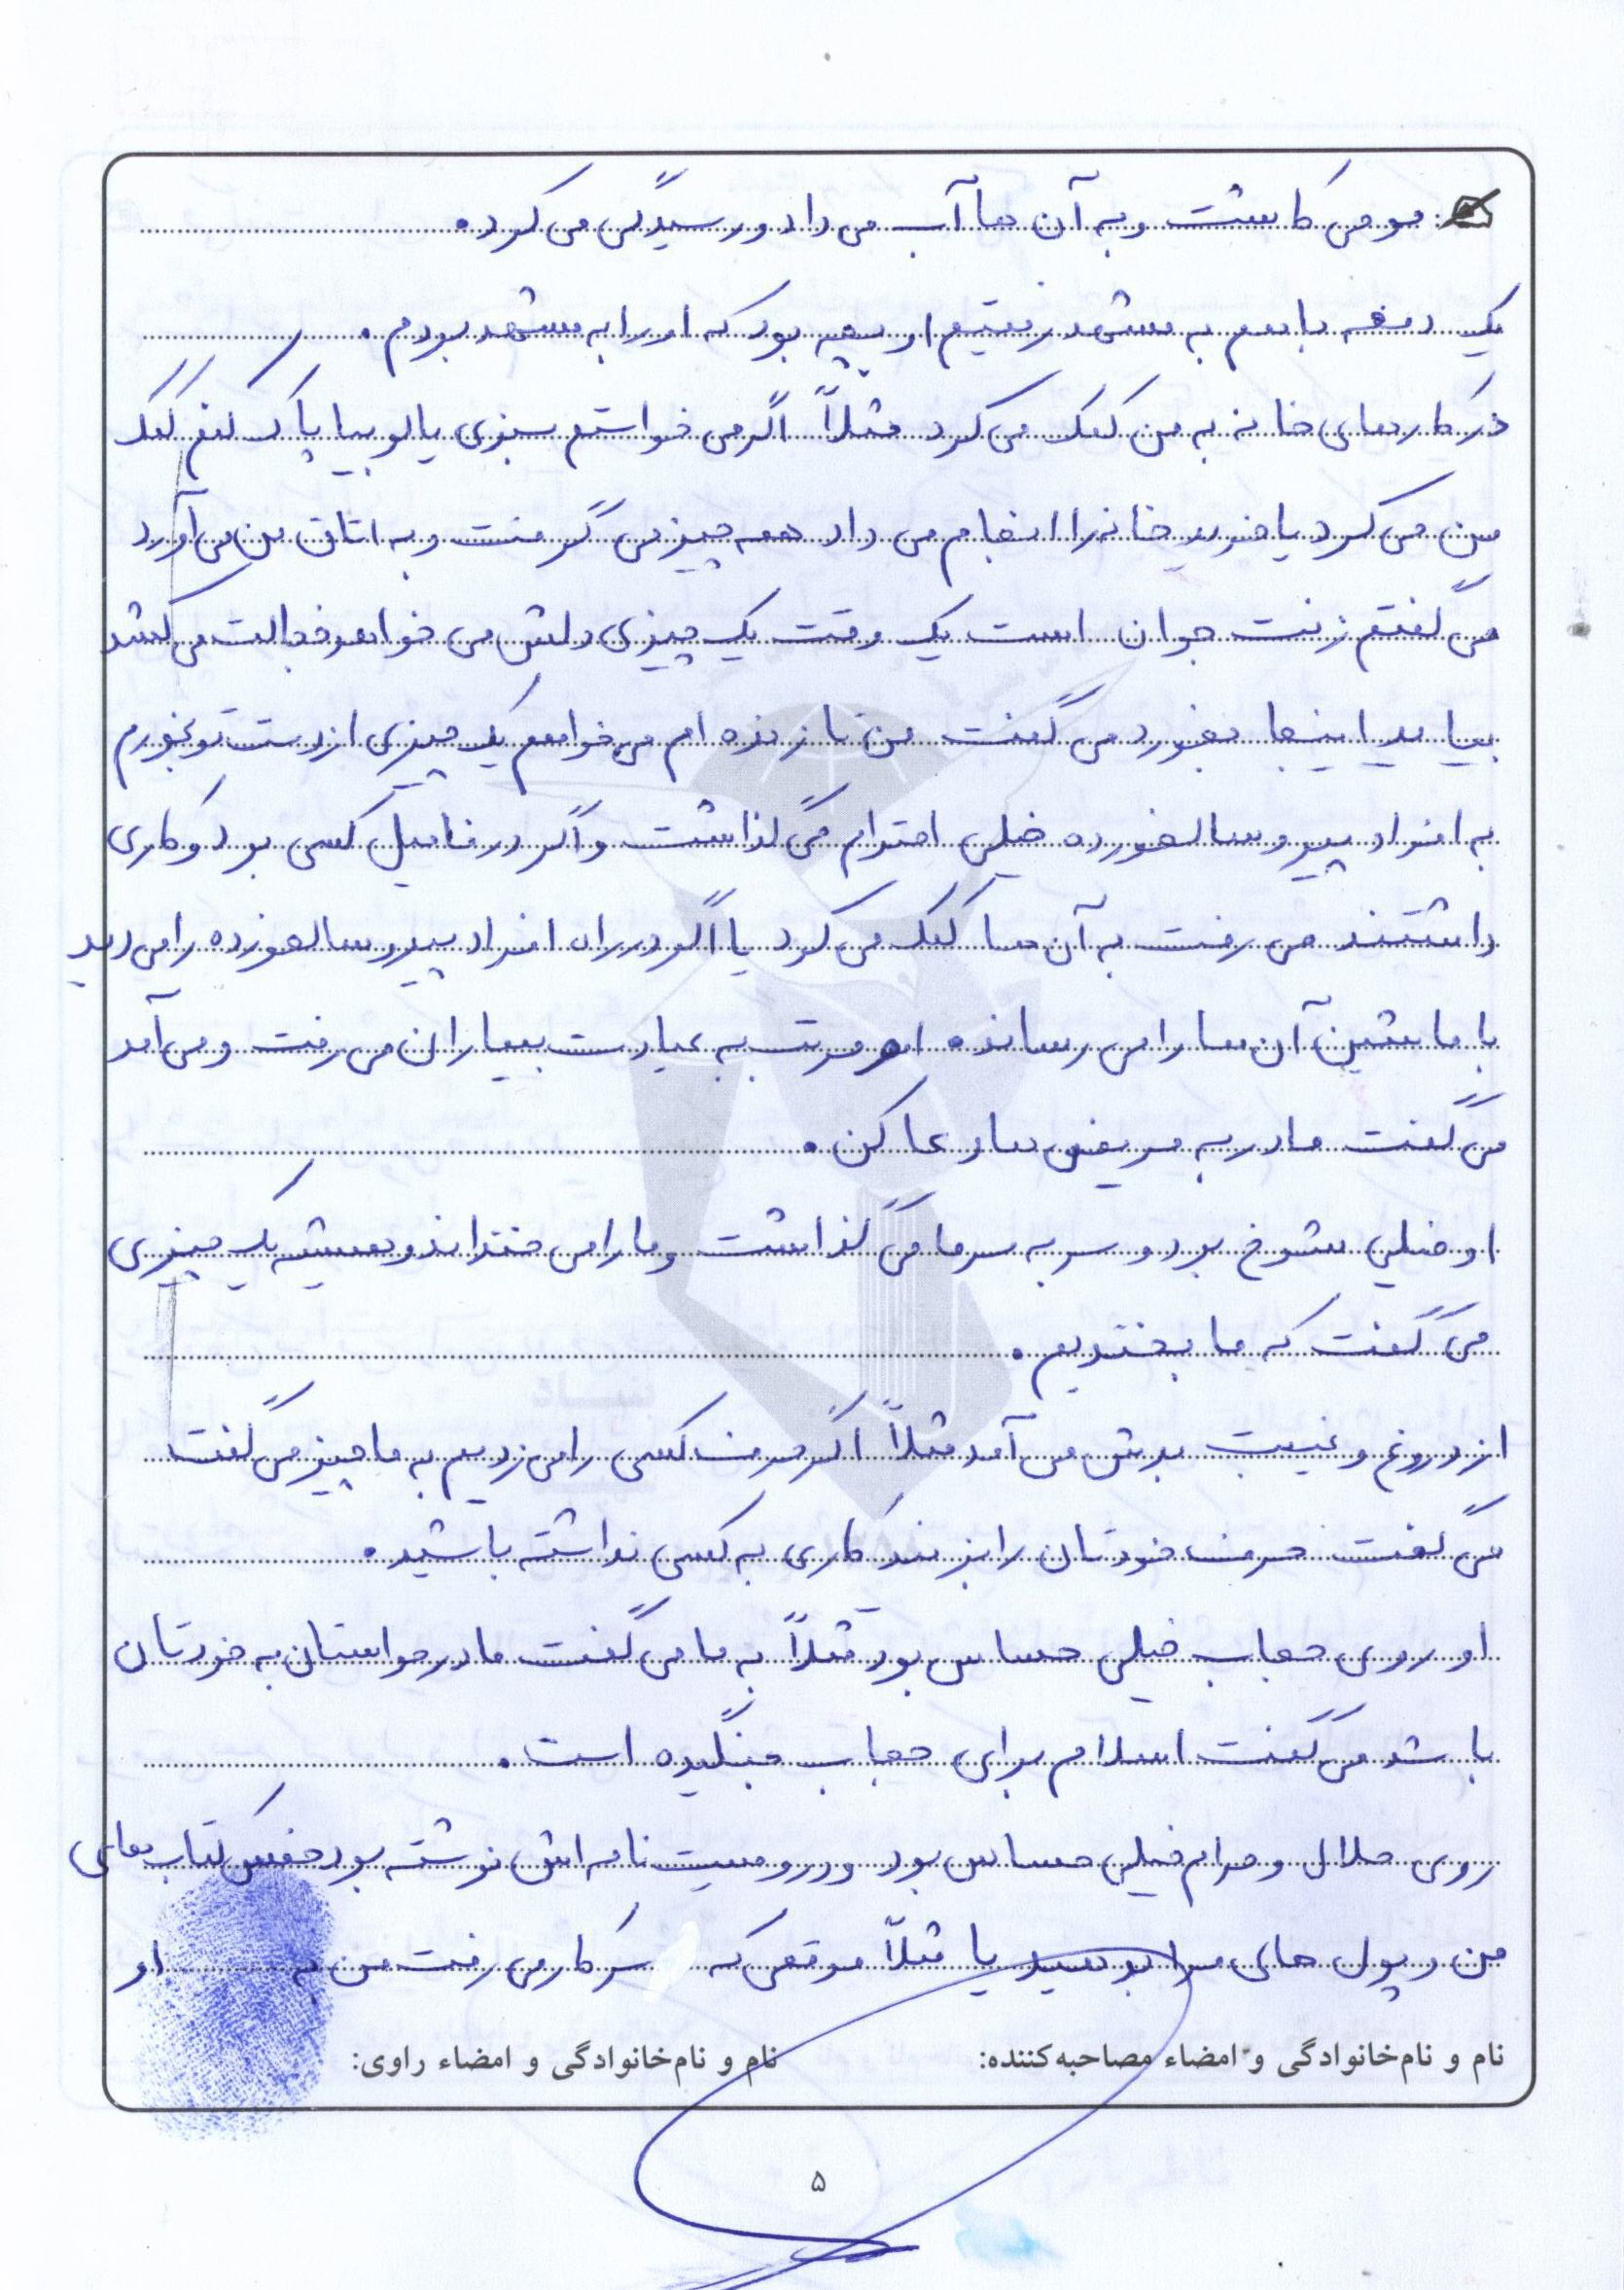 مو می کاشت و به آن ها آب می داد و رسیدگی می کرد.
یک دفعه با هم به مشهد رفتیم او بچه بود که او را به مشهد بردم.
در کارهای خانه به من کمک می کرد مثلاً اگر می خواستم سبزی یا لوبیا پاک کنم کمک
من می کرد یا خرید خانه را انجام می داد همه چیز می گرفت و به اتاق من می آورد
می گفتم زنت جوان است یک وقت یک چیزی دلش می خواهد خجالت می کشد
بیاید اینجا بخورد می گفت من تا زنده ام می خواهم یک چیزی از دست تو بخورم
به افراد پیر و سالخورده خیلی احترام می گذاشت و اگر در فامیل کسی بود و کاری
داشتند می رفت به آن ها کمک می کرد یا اگر در راه افراد پیر و سالخورده را می دید
با ماشین آن ها را می رساند. او مرتب به عیادت بیماران می رفت و می آمد
می گفت مادر به مریض ها دعا کن.
او خیلی شوخ بود و سر به سر ما می گذاشت و ما را می خنداند و همیشه یک چیزی
می گفت که ما بخندیم.
از دروغ و غیبت بدش می آمد مثلاً اگر حرف کسی را می زدیم به ما چیز می گفت
می گفت حرف خودتان را بزنید کاری به کسی نداشته باشید.
او روی حجاب خیلی حساس بود مثلاً به ما می گفت مادر حواستان به خودتان
باشد می گفت اسلام برای حجاب جنگیده است.
روی حلال و حرام خیلی حساس بود و در وصیت نامه اش نوشته بود خمس کتاب های
من و پول های مرا بدهید یا مثلاً موقعی که سر کار می رفت من به او
نام و نام‌خانوادگی و امضاء مصاحبه‌کننده: نام و نام‌خانوادگی و امضاء راوی:
۵